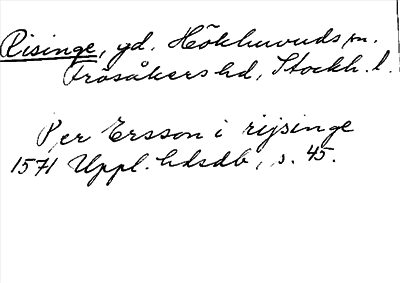 Risinge, yd. Hökhuvuds sn.
Frösåkers hd, Stockh. l.
Per Ersson i rijsinge
1571 Uppl. hdsdb, s. 45.